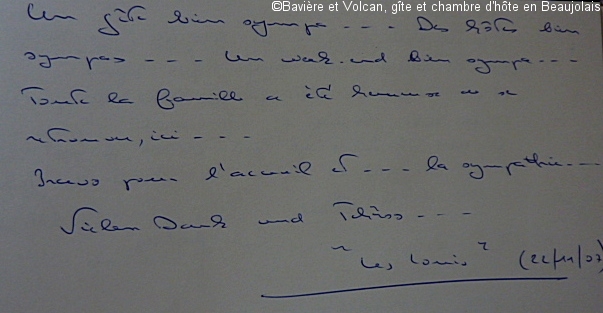 ©Bavière et Volcan, gîte et chambre d'hôte en Beaujolais
Un gîte bien sympa - - - Des hôtes bien
sympas - - - Un week-end bien sympa - - -
Toute la famille a été heureuse de se
retrouver, ici - - -
Bravo pour l'accueil et - - - la sympathie - - -
Vielen Dank und Tchüss - - -
"Les Louis" (22/11/07)